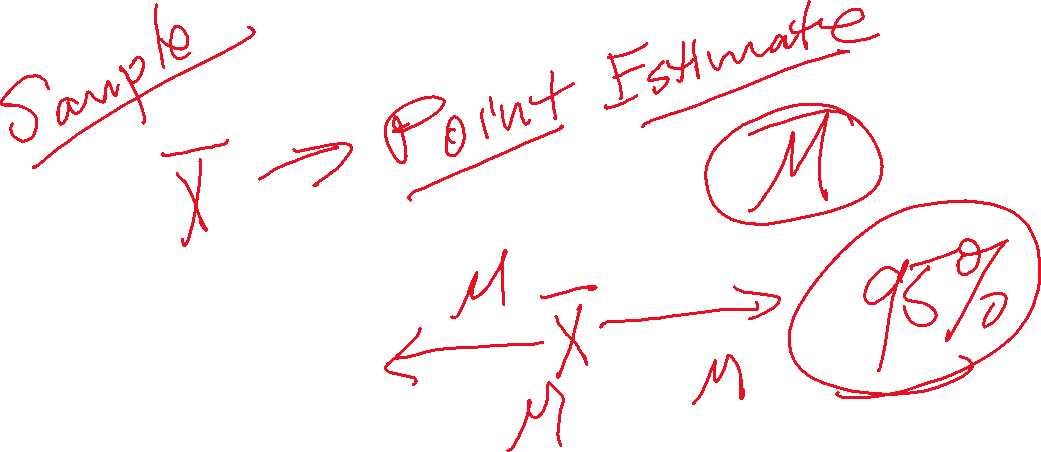 Sample
X̄ → Point Estimate
μ
μ X̄ 95%
μ μ